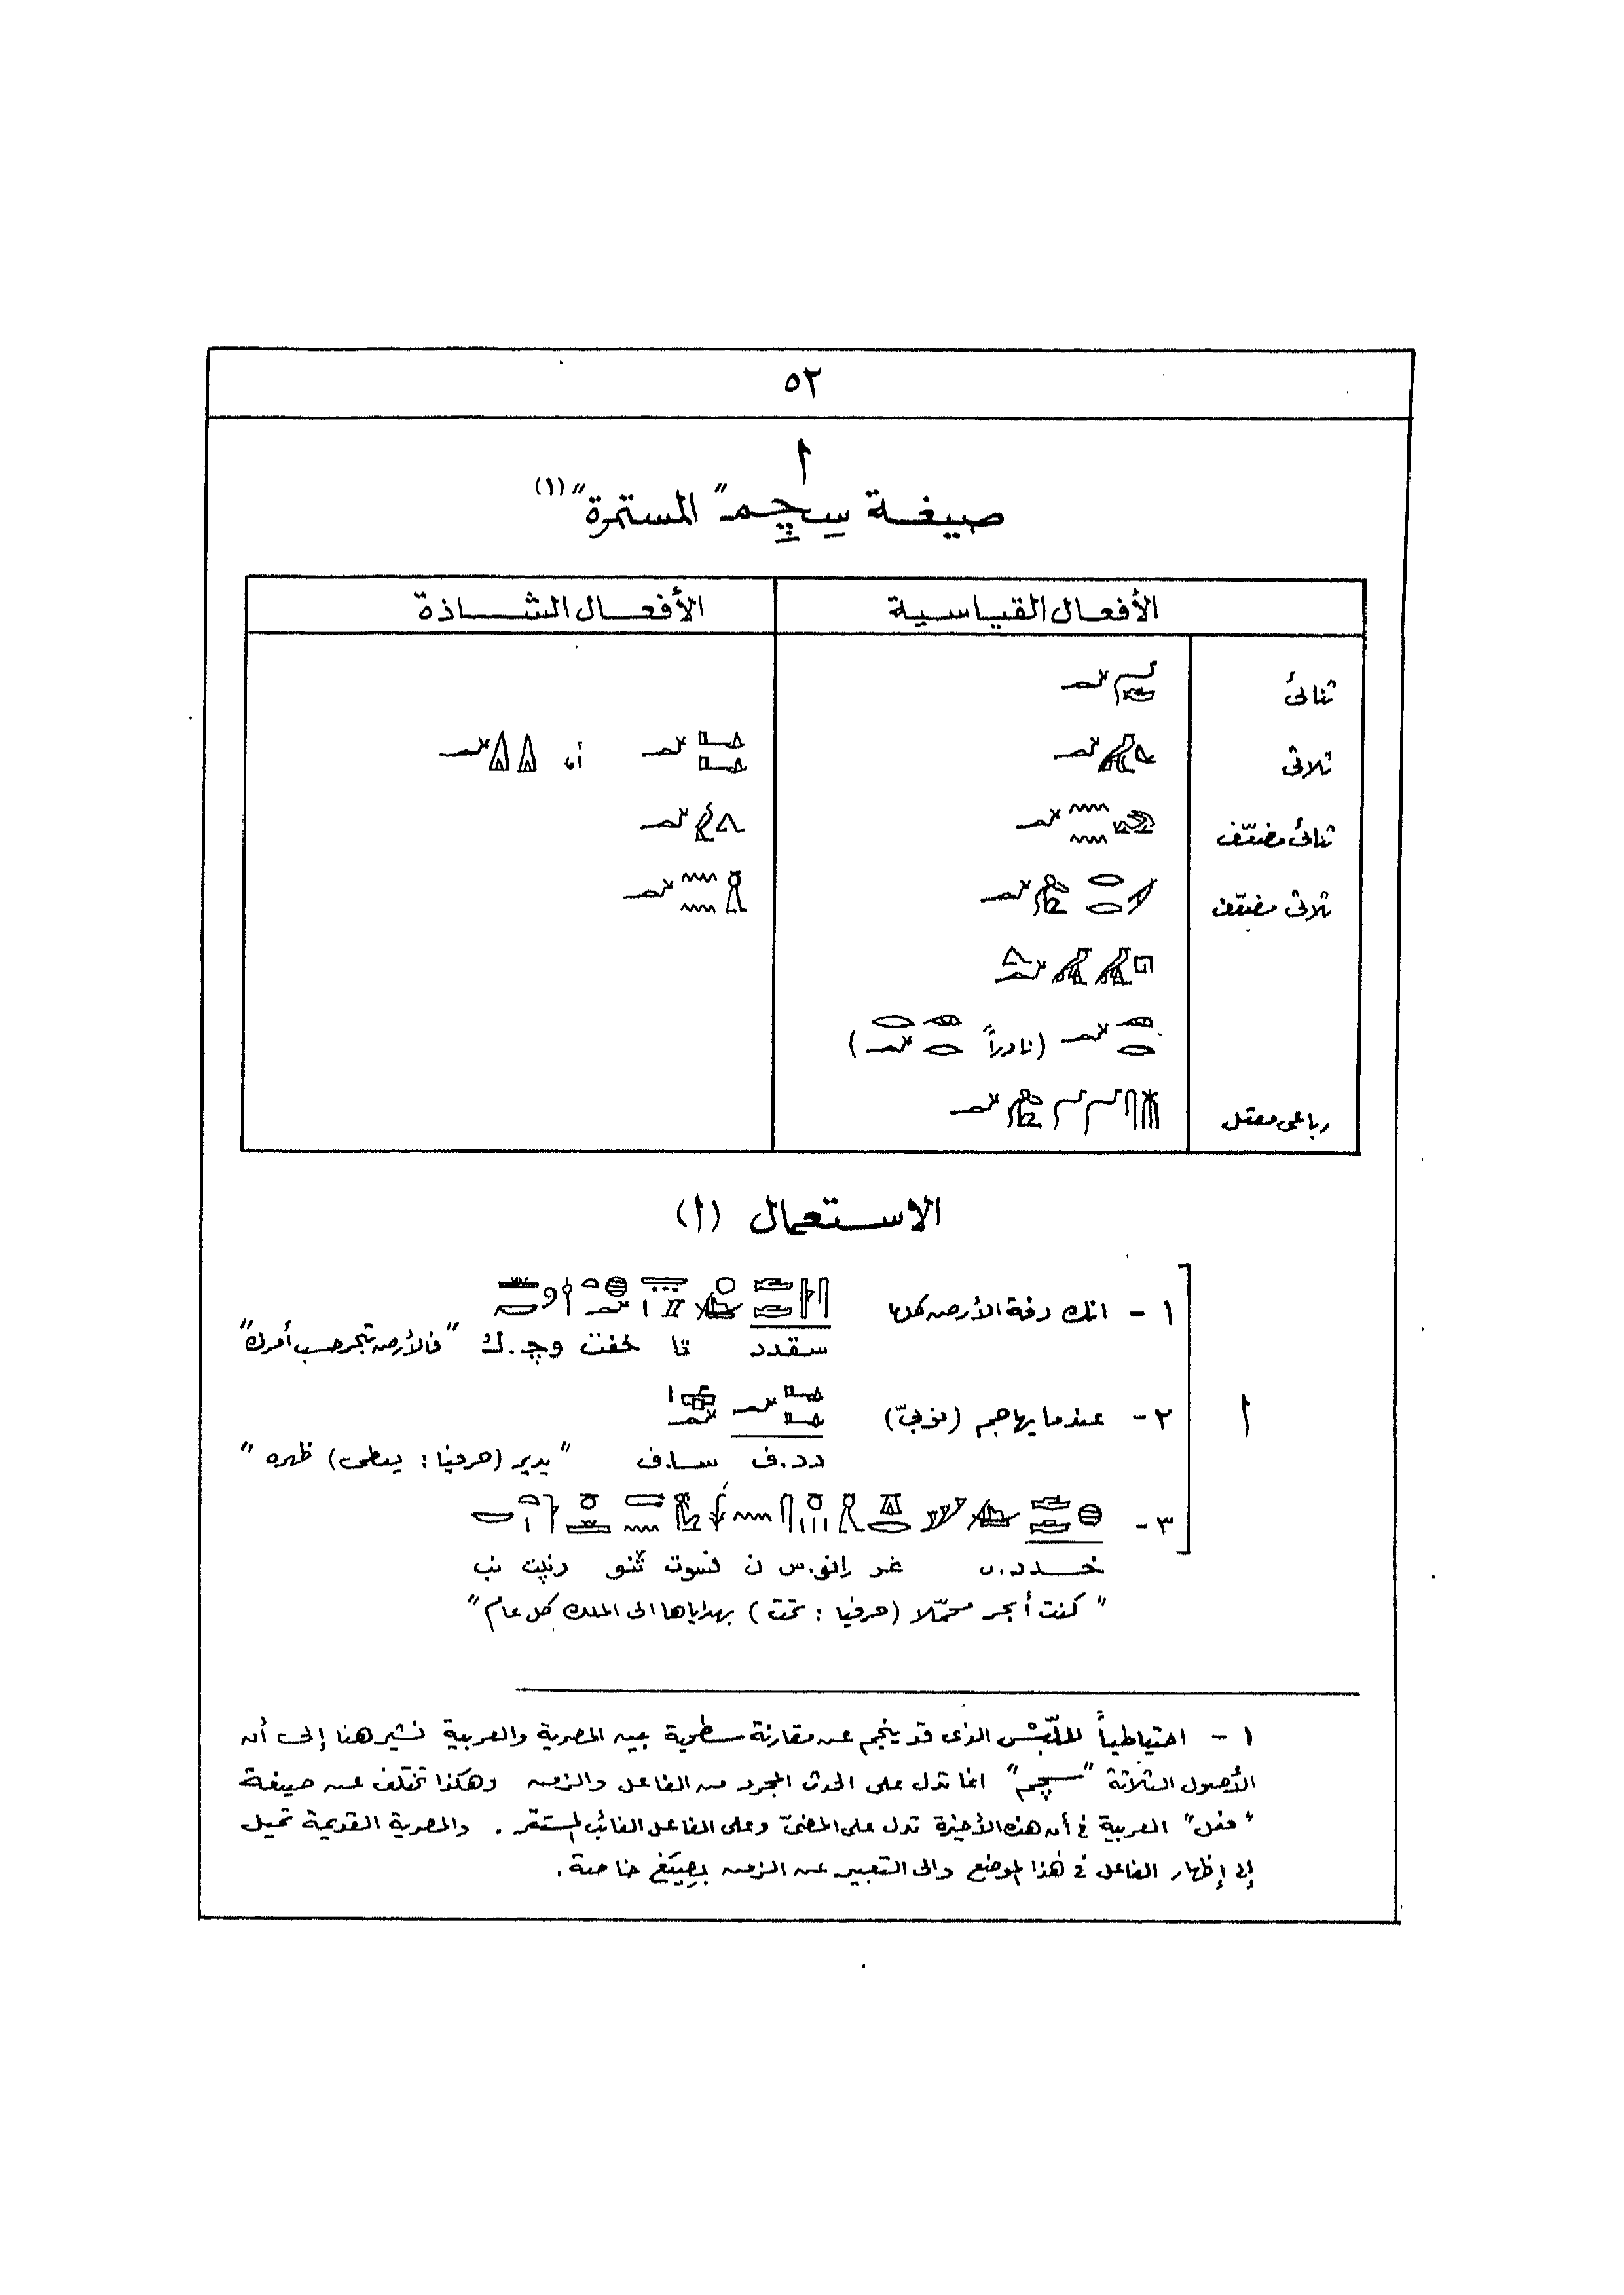 ٥٢
١
صيغة سچم "المستمرة" (١)
الأفعال القياسية الأفعال الشاذة
ثنائى
ثلاثى أو
ثنائى مضعّف
ثلاثى مضعّف
(نادراً )
رباعى معتل
الاستعمال (١)
١ - انك دفة الأرض كلها
سقدد تا خفت وچ.ك "فالأرض تبحر حسب أمرك"
١
٢ - عندما يهاجم (نوبىّ)
دد.ف سا.ف "يدير (حرفيا : يعطى) ظهره"
٣ -
خدد. غر إنو.س ن نسوت ثنو رنپت نب
"كنت أبحر محمّلا (حرفيا : تحت) بهداياها الى الملك كل عام"
١ - احتياطياً لللّبْس الذى قد ينجم عن مقارنة سطحية بين المصرية والعربية نشير هنا إلى أن
الأصول الثلاثة "سچم" انما تدل على الحدث المجرد من الفاعل والزمن وهكذا تختلف عن صيغة
"فعل" العربية فى أن هذه الأخيرة تدل على المضىّ وعلى الفاعل الغائب المستتر . والمصرية القديمة تميل
إلى إظهار الفاعل فى هذا الموضع والى التعبير عن الزمن بصِيَغ خاصة .